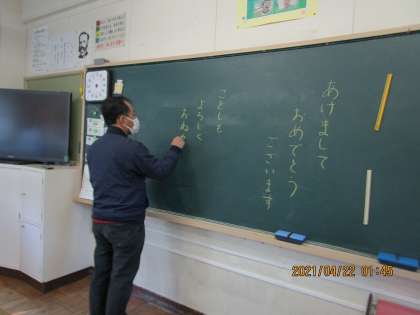 あけまして
おめでとう
ございます
ことしも
よろしく
おね
2021/04/22 01:45